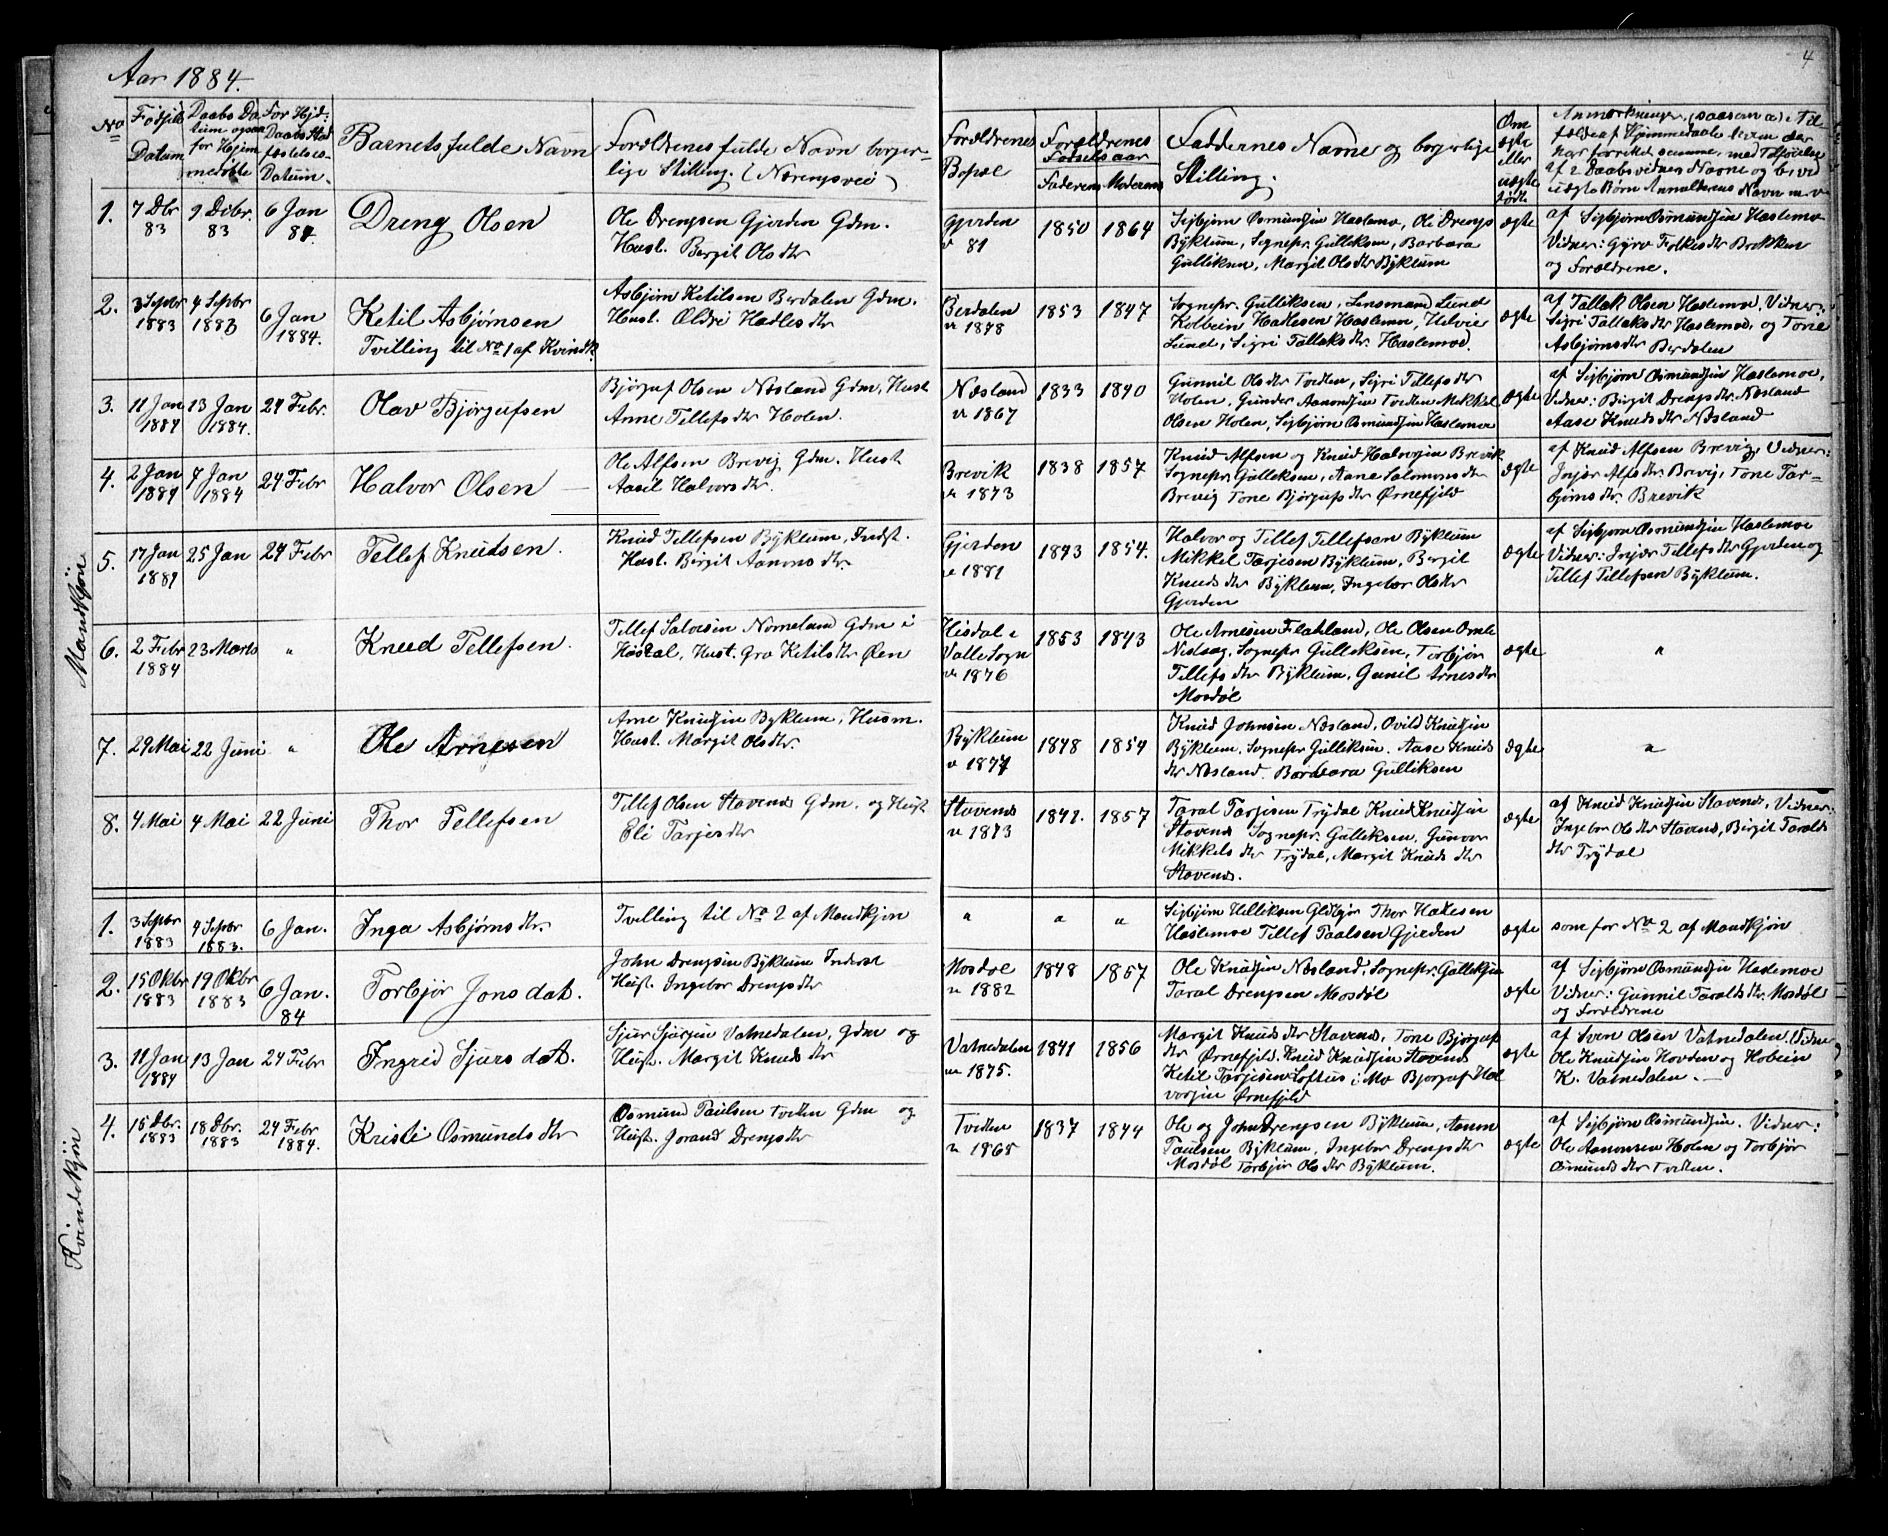 4
Aar 1884.
No
Fødsels Datum
Daabs Da
tum ogsaa
for Hjem
medøbte
For Hjd:
Daabs Stad
fæstelses-
Datum.
Barnets fulde Navn
Forældrenes fulde Navn borger-
lige Stilling. (Næringsvei)
Forældrenes
Bopæl
Forældrenes
Fødselsaar
Faderens Moderens
Faddernes Navne og borgerlige
Stilling.
Om
ægte
eller
uægte
fødte
Anmærkninger, (saasom a) Til
fælde af Hjemmedaab hvem der
har forrettet samme, med Tilføielse
af 2 Daabsvidners Navne og b) ved
uægte Børn Anmelderens Navn m.v
Mandkjøn
1. 7 Dbr 83 9 Decbr. 83 6 Jan 84. Dreng Olsen
Ole Drengsen Gjerden Gdm.
Hust. Bergit Olsdtr
Gjerden v 81 1850 1864
Sigbjørn Osmundsen Haslemo, Ole Drengs
Byklum, Sognepr. Gulliksen, Barbara
Gulliksen, Margit Olsdtr Byklum
ægte
af Sigbjørn Osmundsen Haslemo
Vidner: Gyro Folkesdtr Brokken
og Forældrene.
2. 3 Septbr 1883 4 Septbr 1883 6 Jan 1884. Ketil Asbjørnsen
Tvilling til No 1 af Kvindk.
Asbjørn Ketilsen Berdalen Gdm.
Hust. Oldri Hadlesdtr
Berdalen v 1878 1853 1847
Sognepr. Gulliksen, Lensmand Lund
Kolbein Hadlesen Haslemo, Helvie
Lund, Sigri Tallaksdtr. Haslemo.
ægte
af Tallak Olsen Haslemo, Vidner:
Sigri Tallaksdtr Haslemo, og Tone
Asbjørnsdtr Berdalen
3. 11 Jan 1884 13 Jan 1884. 24 Febr. Olav Bjørgufsen
Bjørguf Olsen Næsland Gdm, Hust
Anne Tillefsdtr Holen.
Næsland v 1867 1833 1840
Gunnil Olsdtr Tveiten, Sigri Tillefsdtr
Holen, Gunder Aanondsen Tveiten Mikkel
Olsen Holen, Sigbjørn Osmundsen Haslemo
Ægte
af Sigbjørn Osmundsen Haslemo,
Vidner: Birgit Drengsdtr. Næsland
Aase Knudsdtr Næsland
4. 2 Jan 1884 7 Jan 1884 24 Febr Halvor Olsen
Ole Alfsen Brevig Gdm. Hust
Aasil Halvorsdtr.
Brevik v 1873 1838 1857
Knud Alfsen og Knud Halvorsen Brevik
Sognepr. Gulliksen, Anne Salomonsdtr
Brevig Tone Bjørgufsdtr Ørnefjeld
Ægte
af Knud Alfsen Brevig, Vidner:
Ingjær Alfsdtr. Brevig, Tone Tor-
bjørnsdtr. Brevik
5. 17 Jan 1884 25 Jan 24 Febr Tellef Knudsen.
Knud Tillefsen Byklum, Indst.
Hust. Birgit Aanonsdtr
Gjerden v 1881 1843 1854.
Halvor og Tillef Tillefsen Byklum
Mikkel Tarjesen Byklum, Bergit
Knudsdtr Byklum, Ingebor Olsdtr
Gjerden
ægte
af Sigbjørn Osmundsen Haslemo
Vidner: Ingjær Tillefsdtr Gjerden og
Tillef Tillefsen Byklum.
6. 2 Febr 1884 23 Marts " Knud Tellefsen.
Tillef Salvesen Nomeland Gdm i
Hisdal, Hust. Gro Ketilsdtr Øen
Hisdal i
Valle Sogn
v 1876 1853 1843
Ole Arnesen Flatland, Ole Olsen Omli
Sognepr Gulliksen, Torbjør
Tillefsdtr Byklum, Gunil Arnesdtr
Mosdøl
ægte "
7. 29 Mai 22 Juni " Ole Arnesen
Arne Knudsen Byklum, Husm.
Hust. Margit Olsdtr.
Byklum v 1877 1848 1854
Knud Johnsen Næsland, Ovild Knudsen
Byklum, Sognepr Gulliksen. Aase Knuds
dtr Næsland. Barbara Gulliksen
Ægte "
8. 4 Mai 4 Mai 22 Juni Thor Tellefsen
Tillef Olsen Stavenes Gdm. og Hust
Eli Tarjesdtr
Stavenes v 1873 1842. 1857
Taral Tarjesen Trydal Knud Knudsen
Stavenes Sognepr. Gulliksen, Gunvor
Mikkelsdtr Trydal, Margit Knudsdtr
Stavenes.
ægte
af Knud Knudsen Stavenes, Vidner:
Ingebor Olsdtr Stavenes, Birgit Taralds
dtr Trydal
Kvindekjøn
1. 3 Septbr 1883 4 Septbr 1883. 6 Jan. Inga Asbjørnsdtr.
Tvilling til No 2 af Mandkjøn
" " "
Sigbjørn Thor Hadlesen
Haslemo Tillef Paalsen Gjerden
ægte som for No 2 af Mandkjøn
2. 15 Oktbr 1883 19 Oktbr 1883 6 Jan. 84 Torbjør Jonsdat.
John Drengsen Byklum Inderst
Hust. Ingebor Drengsdtr
Mosdøl v 1882 1848 1857
Ole Knudsen Næsland, Sognepr. Gulliksen
Taral Drengsen Mosdøl
ægte
af Sigbjørn Osmundsen Haslemo
Vidner: Gunnil Taraldsdtr. Mosdøl
og Forældrene
3. 11 Jan 1884 13 Jan 24 Febr Ingrid Sjursdat.
Sjur Sjursen Vatnedalen, Gdm og
Hust. Margit Knudsdtr
Vatnedalen v 1875. 1841 1856
Margit Knudsdtr Stavenes, Tone Bjørgufs
dtr Ørnefjeld. Knud Knudsen Stavenes
Ketil Tarjesen Loftus i Mo Bjørguf Hal
vorsen Ørnefjeld
ægte
af Sven Olsen Vatnedalen. Vidner
Ole Knudsen Hovden og Hobein
K. Vatnedalen.
4. 15 Dbr. 1883 18 Dbr. 1883 24 Febr 1884. Kristi Osmundsdtr
Osmund Paulsen Tveiten Gdm og
Hust. Jorand Drengsdtr
Tveiten v 1865 1837 1844
Ole og John Drengsen Byklum, Aanon
Paulsen Byklum, Ingebor Drengsdtr
Mosdøl Torbjør Olsdtr Byklum.
ægte
af Sigbjørn Osmundsen. Vidner:
Ole Aanonsen Holen og Torbjør
Osmundsdtr Tveiten.